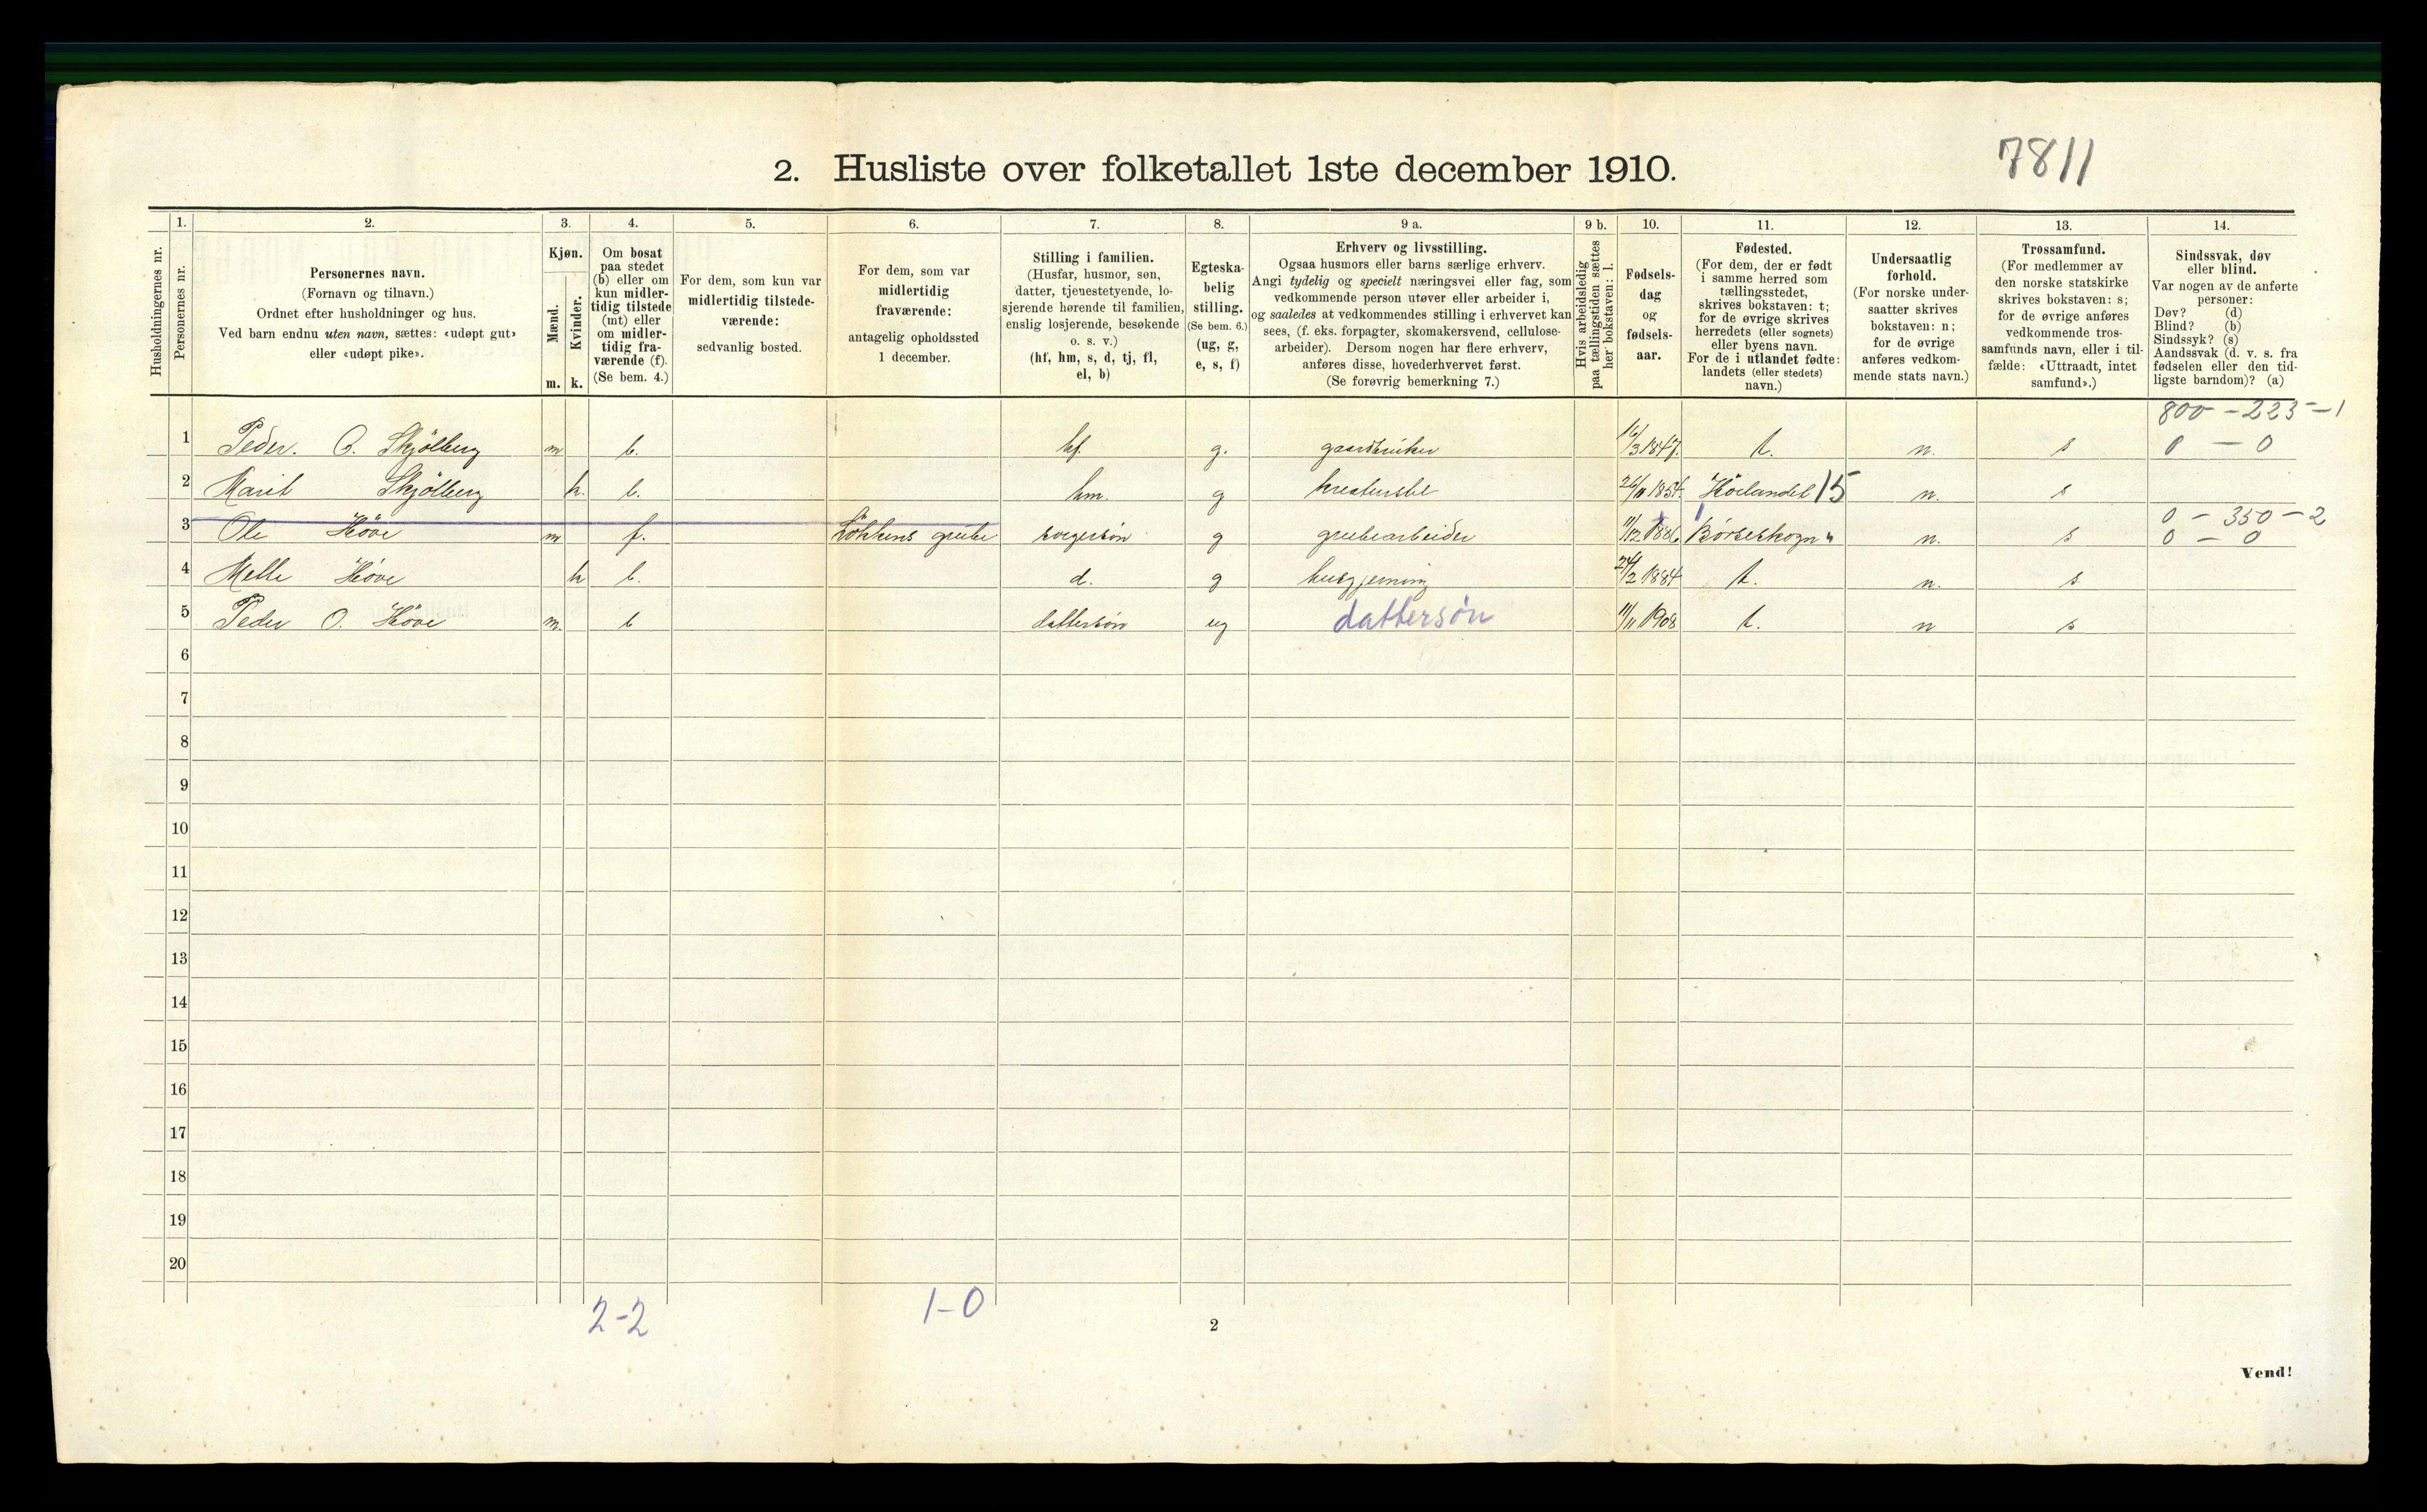 7811
2. Husliste over folketallet 1ste december 1910.
Husholdningernes nr.
1. Personernes nr.
2. Personernes navn.
(Fornavn og tilnavn.)
Ordnet efter husholdninger og hus.
Ved barn endnu uten navn, sættes: «udøpt gut»
eller «udøpt pike».
3. Kjøn.
Mænd. Kvinder.
m. k.
4. Om bosat
paa stedet
(b) eller om
kun midler-
tidig tilstede
(mt) eller
om midler-
tidig fra-
værende (f).
(Se bem. 4.)
5. For dem, som kun var
midlertidig tilstede-
værende:
sedvanlig bosted.
6. For dem, som var
midlertidig
fraværende:
antagelig opholdssted
1 december.
7. Stilling i familien.
(Husfar, husmor, søn,
datter, tjenestetyende, lo-
sjerende hørende til familien,
enslig losjerende, besøkende
o. s. v.)
(hf, hm, s, d, tj, fl,
el, b)
8. Egteska-
belig
stilling.
(Se bem. 6.)
(ug, g,
e, s, f)
9 a. Erhverv og livsstilling.
Ogsaa husmors eller barns særlige erhverv.
Angi tydelig og specielt næringsvei eller fag, som
vedkommende person utøver eller arbeider i,
og saaledes at vedkommendes stilling i erhvervet kan
sees, (f. eks. forpagter, skomakersvend, cellulose-
arbeider). Dersom nogen har flere erhverv,
anføres disse, hovederhvervet først.
(Se forøvrig bemerkning 7.)
9 b. Hvis arbeidsledig
paa tællingstiden sættes
her bokstaven: l.
10. Fødsels-
dag
og
fødsels-
aar.
11. Fødested.
(For dem, der er født
i samme herred som
tællingsstedet,
skrives bokstaven: t;
for de øvrige skrives
herredets (eller sognets)
eller byens navn.
For de i utlandet fødte:
landets (eller stedets)
navn.)
12. Undersaatlig
forhold.
(For norske under-
saatter skrives
bokstaven: n;
for de øvrige
anføres vedkom-
mende stats navn.)
13. Trossamfund.
(For medlemmer av
den norske statskirke
skrives bokstaven: s;
for de øvrige anføres
vedkommende tros-
samfunds navn, eller i til-
fælde: «Uttraadt, intet
samfund».)
14. Sindssvak, døv
eller blind.
Var nogen av de anførte
personer:
Døv? (d)
Blind? (b)
Sindssyk? (s)
Aandssvak (d. v. s. fra
fødselen eller den tid-
ligste barndom)? (a)
800 - 223 - 1
1 Peder. O. Skjölberg m b. hf. g. gaardbruker 16/3 1847. t. n. s 0 - 0
2 Marit Skjölberg k. b. hm. g kreaturstel 26/11 1854. Höilandet 15 n. s
0 - 350 - 2
3 Ole Höve m f. Lökkens grube svegersön g grubearbeider 11/12 1886 Börseskogn " n. s 0 - 0
4 Melle Höve k b. d. g husgjerning 24/2 1884 t. n. s
5 Peder O. Höve m. b dattersön ug dattersøn 11/11 1908 t. n s
6
7
8
9
10
11
12
13
14
15
16
17
18
19
20
2-2 1-0
2
Vend!